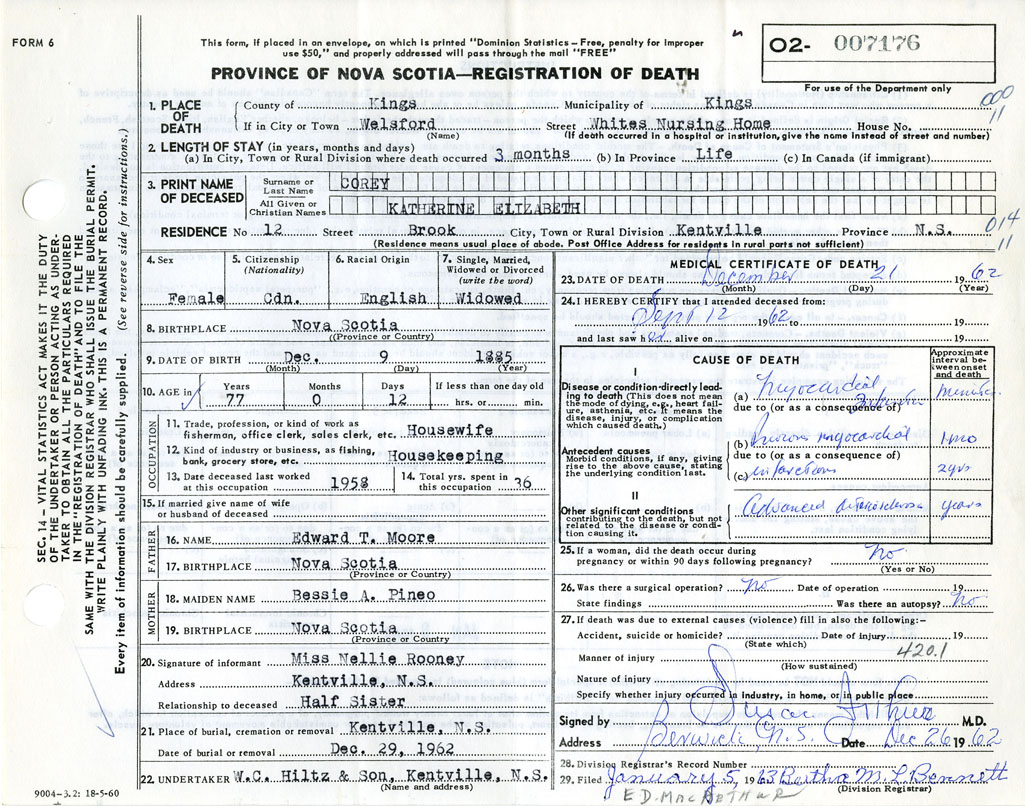 FORM 6
This form, if placed in an envelope, on which is printed "Dominion Statistics—Free, penalty for improper
use $50," and properly addressed will pass through the mail "FREE"
O2- 007176
For use of the Department only
PROVINCE OF NOVA SCOTIA—REGISTRATION OF DEATH
000
11
1. PLACE OF DEATH County of Kings Municipality of Kings
If in City or Town Welsford Street Whites Nursing Home House No.
(Name) (If death occurred in a hospital or institution, give the name instead of street and number)
2. LENGTH OF STAY (in years, months and days)
(a) In City, Town or Rural Division where death occurred 3 months (b) In Province Life (c) In Canada (if immigrant)
3. PRINT NAME OF DECEASED Surname or Last Name COREY
All Given or Christian Names KATHERINE ELIZABETH
014
11
RESIDENCE No 12 Street Brook City, Town or Rural Division Kentville Province N.S.
(Residence means usual place of abode. Post Office Address for residents in rural parts not sufficient)
4. Sex Female
5. Citizenship (Nationality) Cdn.
6. Racial Origin English
7. Single, Married, Widowed or Divorced (write the word) Widowed
8. BIRTHPLACE Nova Scotia
((Province or Country)
9. DATE OF BIRTH Dec. 9 1885
(Month) (Day) (Year)
10. AGE in Years 77 Months 0 Days 12 If less than one day old hrs. or min.
OCCUPATION
11. Trade, profession, or kind of work as
fisherman, office clerk, sales clerk, etc. Housewife
12. Kind of industry or business, as fishing,
bank, grocery store, etc. Housekeeping
13. Date deceased last worked at this occupation 1958
14. Total yrs. spent in this occupation 36
15. If married give name of wife
or husband of deceased
FATHER
16. NAME Edward T. Moore
17. BIRTHPLACE Nova Scotia
(Province or Country)
MOTHER
18. MAIDEN NAME Bessie A. Pineo
19. BIRTHPLACE Nova Scotia
(Province or Country)
20. Signature of informant Miss Nellie Rooney
Address Kentville, N.S.
Relationship to deceased Half Sister
21. Place of burial, cremation or removal Kentville, N.S.
Date of burial or removal Dec. 29, 1962
22. UNDERTAKER W.C. Hiltz & Son, Kentville, N.S.
(Name and address)
MEDICAL CERTIFICATE OF DEATH
23. DATE OF DEATH December 21 1962
(Month) (Day) (Year)
24. I HEREBY CERTIFY that I attended deceased from:
Sept 12 1962 to 19
and last saw her alive on 19
CAUSE OF DEATH
Approximate interval between onset and death
I
Disease or condition directly leading to death (This does not mean the mode of dying, e.g., heart failure, asthenia, etc. It means the disease, injury, or complication which caused death.)
(a) Myocardial Infarction
due to (or as a consequence of)
Antecedent causes
Morbid conditions, if any, giving rise to the above cause, stating the underlying condition last.
(b) Previous myocardial 1 mo
due to (or as a consequence of)
(c) infarctions 2 yrs
II
Other significant conditions
contributing to the death, but not related to the disease or condition causing it.
Advanced years
25. If a woman, did the death occur during
pregnancy or within 90 days following pregnancy? No.
(Yes or No)
26. Was there a surgical operation? No Date of operation 19
State findings Was there an autopsy? No.
27. If death was due to external causes (violence) fill in also the following:-
Accident, suicide or homicide? Date of injury 19
(State which)
420.1
Manner of injury
(How sustained)
Nature of injury
Specify whether injury occurred in industry, in home, or in public place
Signed by M.D.
Address Berwick, N.S. Date Dec 26 1962
28. Division Registrar's Record Number
29. Filed January 5, 1963 Bertha M L Bennett
(Division Registrar)
E D. MACARTHUR
9004-3.2: 18-5-60
SEC. 14 – VITAL STATISTICS ACT MAKES IT THE DUTY
OF THE UNDERTAKER OR PERSON ACTING AS UNDER-
TAKER TO OBTAIN ALL THE PARTICULARS REQUIRED
IN THE "REGISTRATION OF DEATH" AND TO FILE THE
SAME WITH THE DIVISION REGISTRAR WHO SHALL ISSUE THE BURIAL PERMIT.
WRITE PLAINLY WITH UNFADING INK. THIS IS A PERMANENT RECORD.
Every item of information should be carefully supplied. (See reverse side for instructions.)